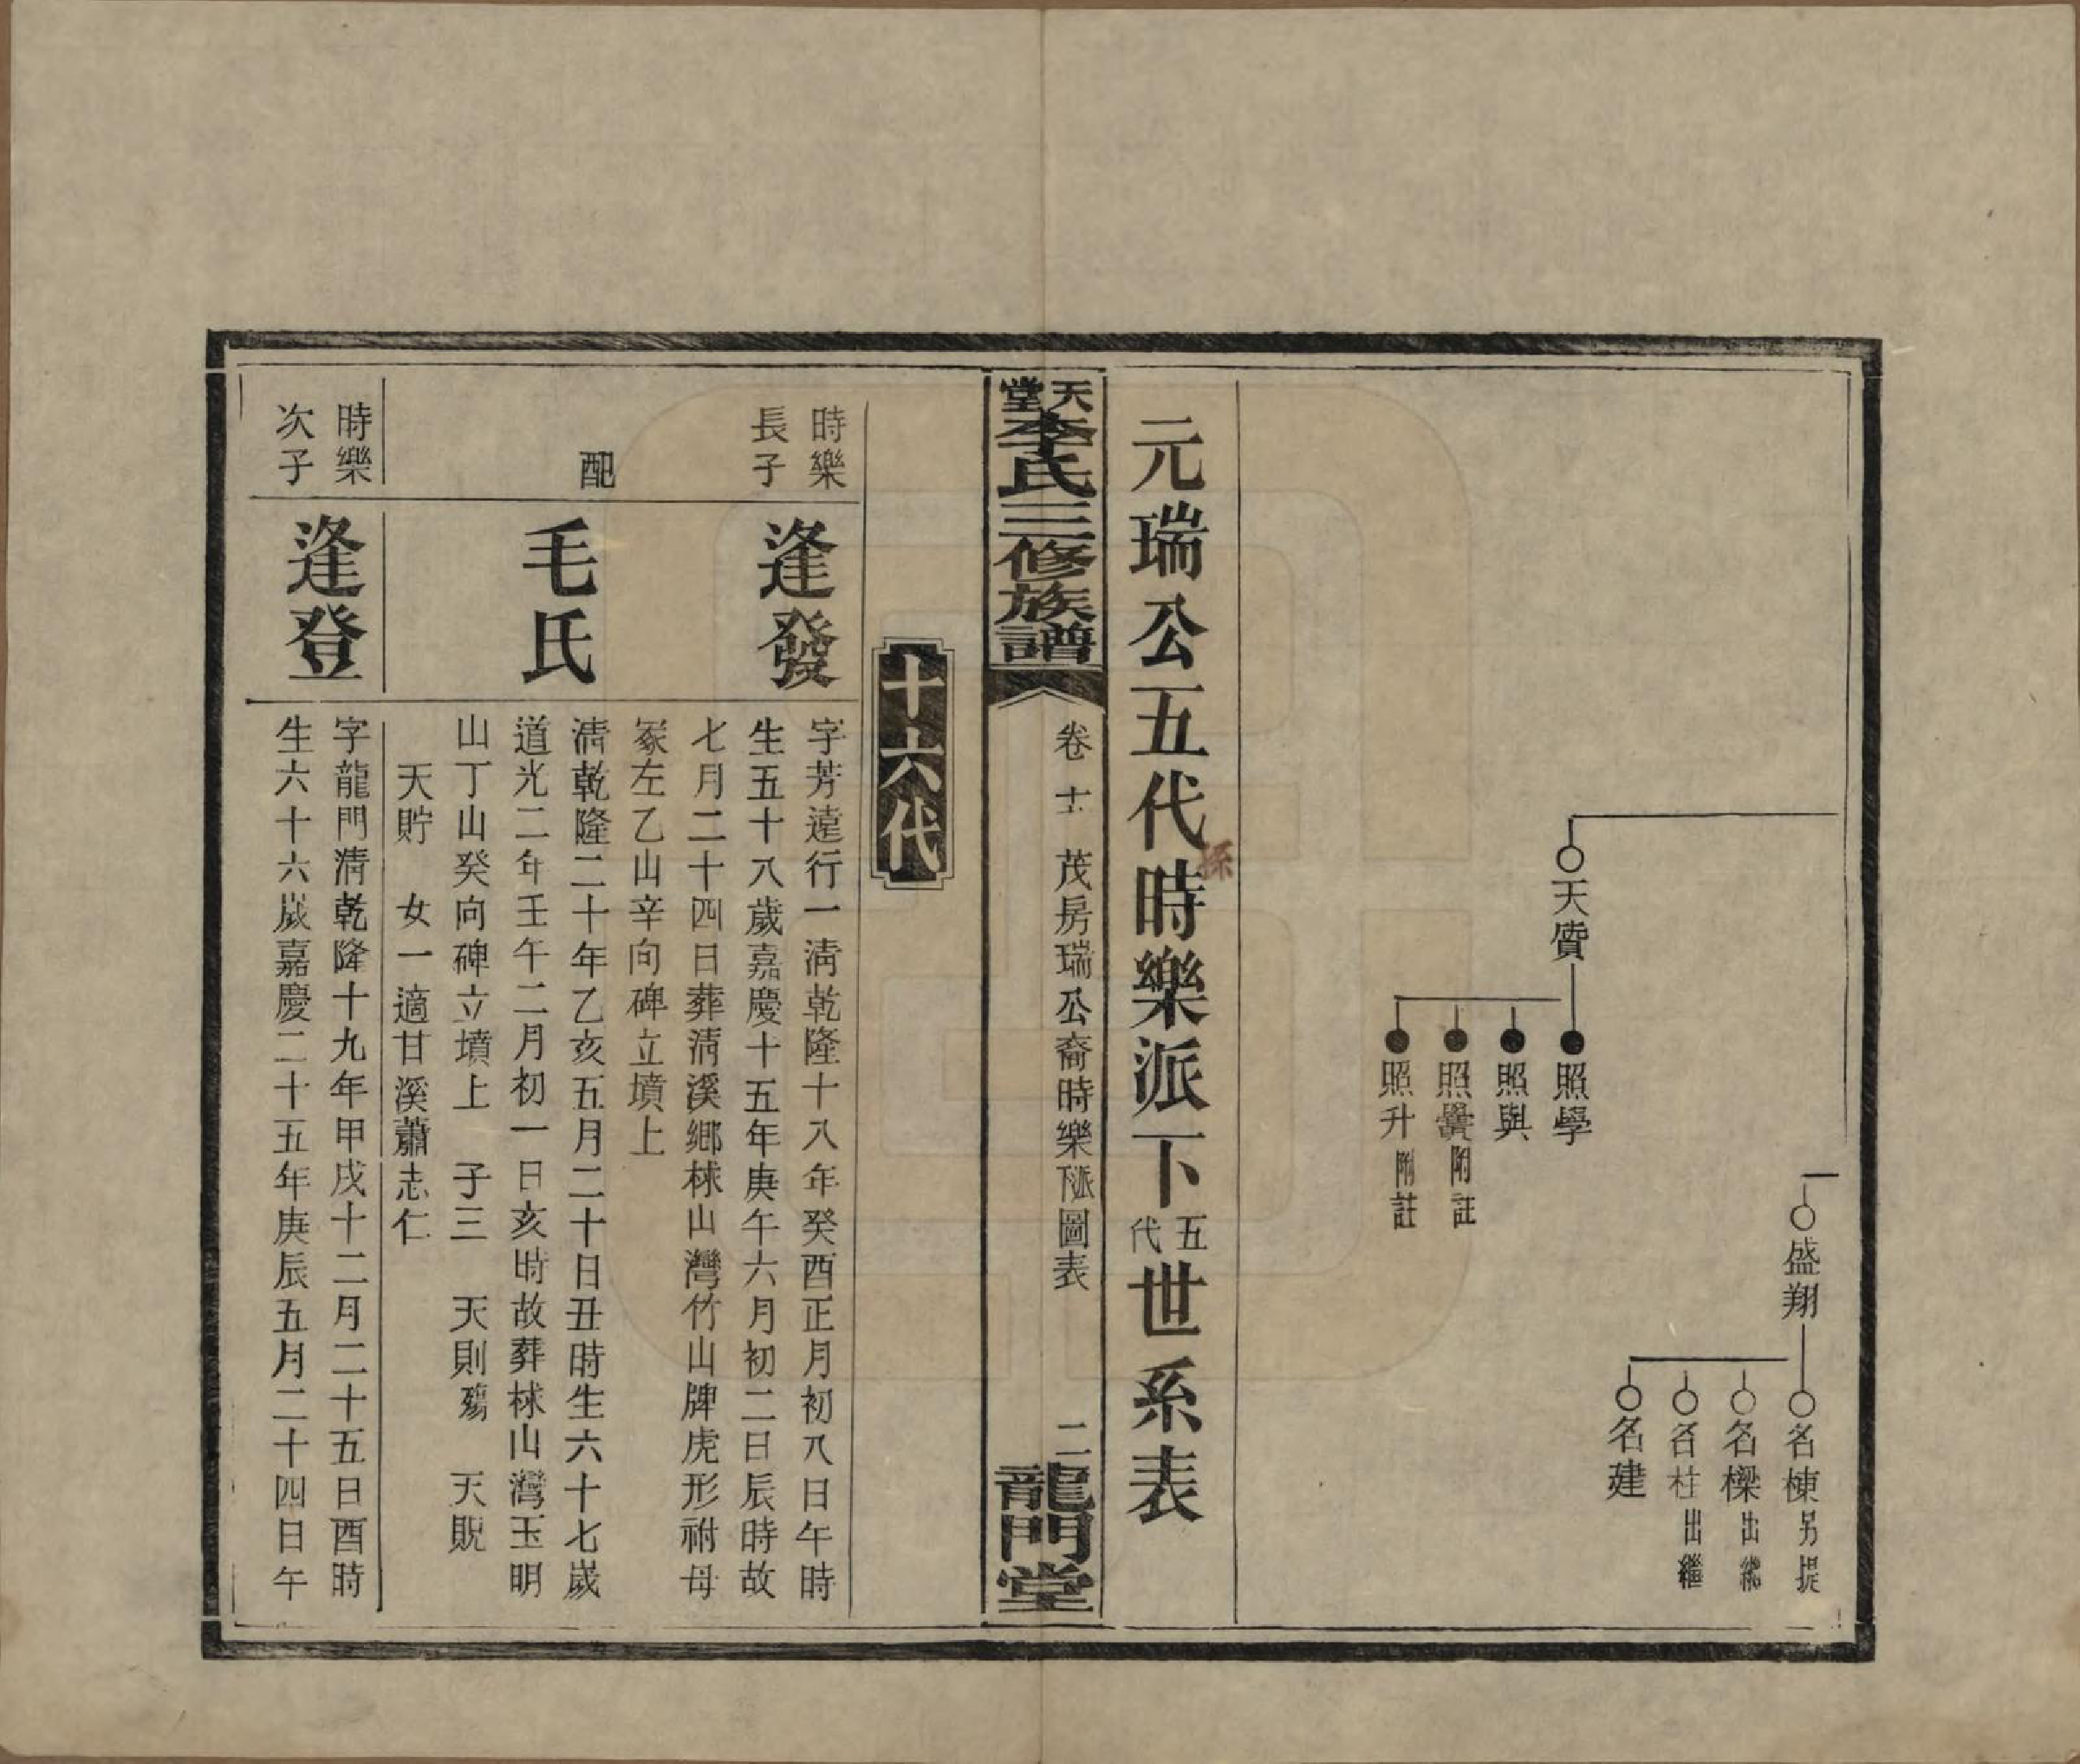 盛翔
名棟 另提
名樑 出繼
名柱 出繼
名建
天賫
照學
照與
照黌 附註
照升 附註
元瑞公五代時樂派下五代世系表
孫
天堂李氏三修族譜
卷十 茂房瑞公裔時樂派下圖表
二
龍門堂
十六代
時樂長子
逢發
字芳遠行一淸乾隆十八年癸酉正月初八日午時
生五十八歲嘉慶十五年庚午六月初二日辰時故
七月二十四日葬淸溪鄉梂山灣竹山牌虎形祔母
冢左乙山辛向碑立墳上
配
毛氏
淸乾隆二十年乙亥五月二十日丑時生六十七歲
道光二年壬午二月初一日亥時故葬梂山灣玉明
山丁山癸向碑立墳上 子三 天則殤 天貺
天貯 女一適甘溪蕭志仁
時樂次子
逢登
字龍門淸乾隆十九年甲戌十二月二十五日酉時
生六十六歲嘉慶二十五年庚辰五月二十四日午